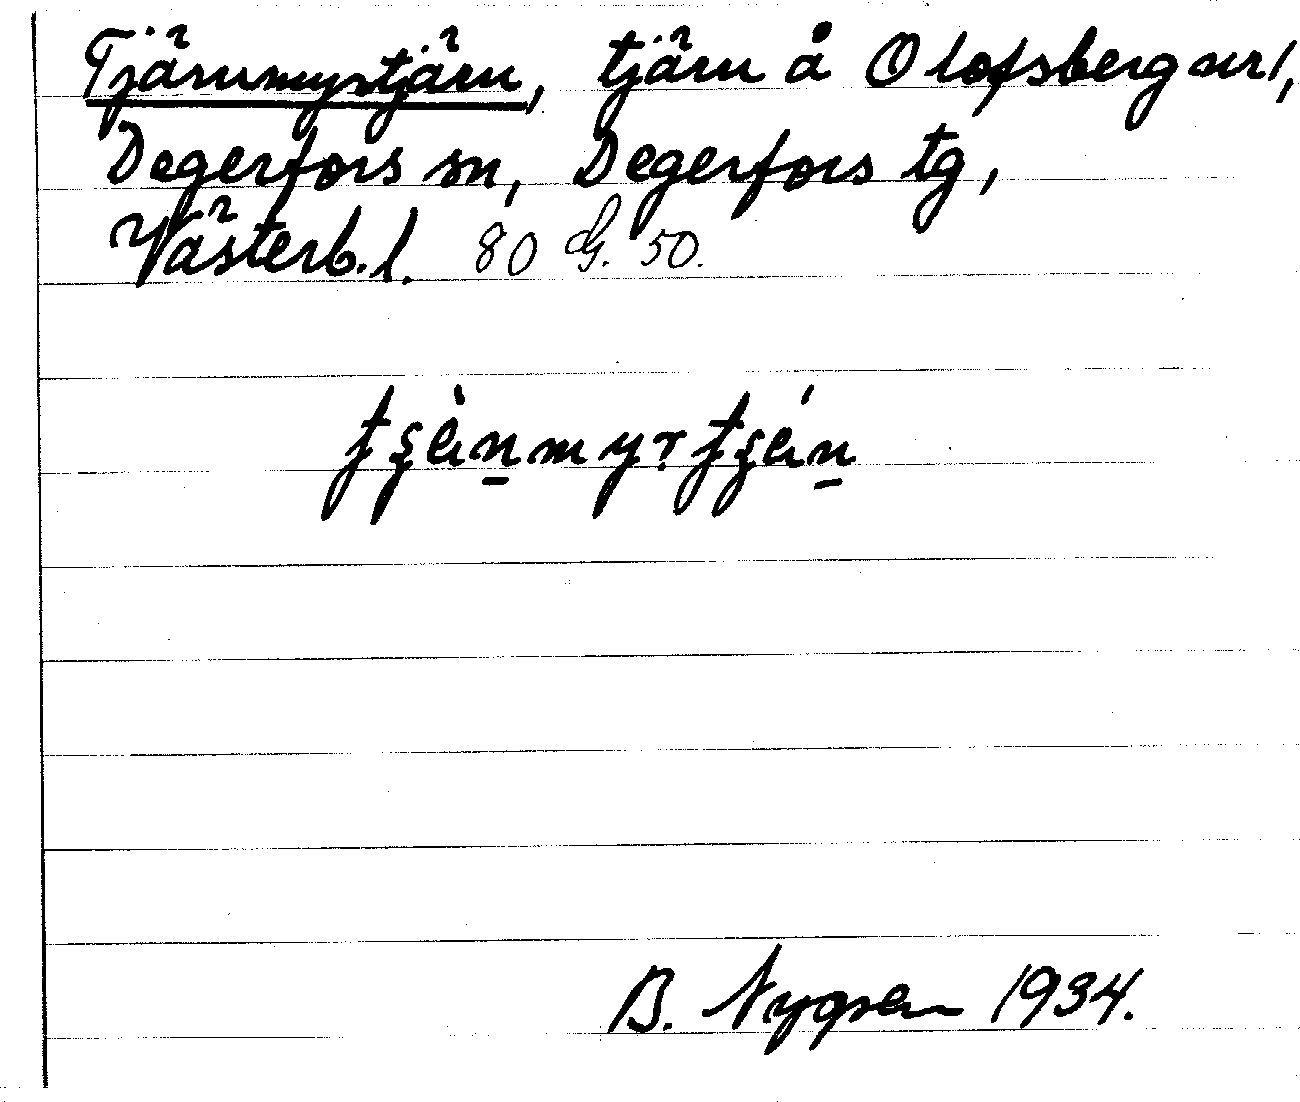 Tjärnmyrtjärn, tjärn å Olofsberg nr 1,
Degerfors sn, Degerfors tg,
Västerb. l. 80 G. 50.
B. Nygren 1934.